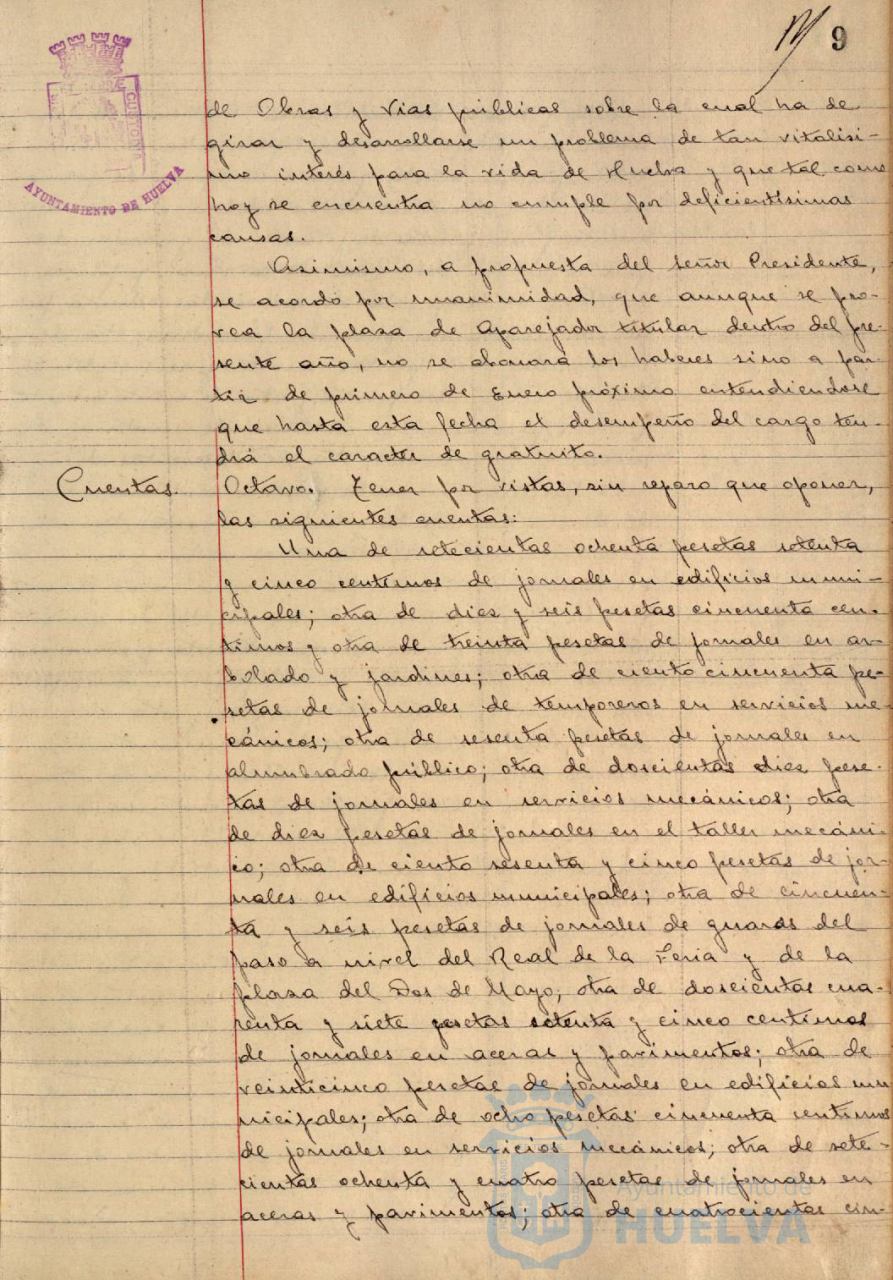 9
AYUNTAMIENTO DE HUELVA
de Obras y Vias públicas sobre la cual ha de
girar y desarrollarse un problema de tan vitalisi-
mo interés para la vida de Huelva y que tal como
hoy se encuentra no cumple por deficientisimas
causas.
Asimismo, a propuesta del señor Presidente,
se acordó por unanimidad, que aunque se pro-
vea la plaza de Aparejador titular dentro del pre-
sente año, no se abonará los haberes sino a par-
tir de primero de Enero próximo entendiendose
que hasta esta fecha el desempeño del cargo ten-
drá el caracter de gratuito.
Cuentas. Octavo. Tener por vistas, sin reparo que oponer,
las siguientes cuentas:
Una de setecientas ochenta pesetas setenta
y cinco centimos de jornales en edificios muni-
cipales; otra de diez y seis pesetas cincuenta cen-
timos y otra de treinta pesetas de jornales en ar-
bolado y jardines; otra de ciento cincuenta pe-
setas de jornales de temporeros en servicios me-
cánicos; otra de sesenta pesetas de jornales en
alumbrado público; otra de doscientas diez pese-
tas de jornales en servicios mecánicos; otra
de diez pesetas de jornales en el taller mecáni-
co; otra de ciento sesenta y cinco pesetas de jor-
nales en edificios municipales; otra de cincuen-
ta y seis pesetas de jornales de guardas del
paso a nivel del Real de la Feria y de la
plaza del Dos de Mayo; otra de doscientas cua-
renta y siete pesetas setenta y cinco centimos
de jornales en aceras y pavimentos; otra de
veinticinco pesetas de jornales en edificios mu
nicipales; otra de ocho pesetas cincuenta centimos
de jornales en servicios mecánicos; otra de sete-
cientas ochenta y cuatro pesetas de jornales en
aceras y pavimentos; otra de cuatrocientas cin-
Ayuntamiento de
HUELVA